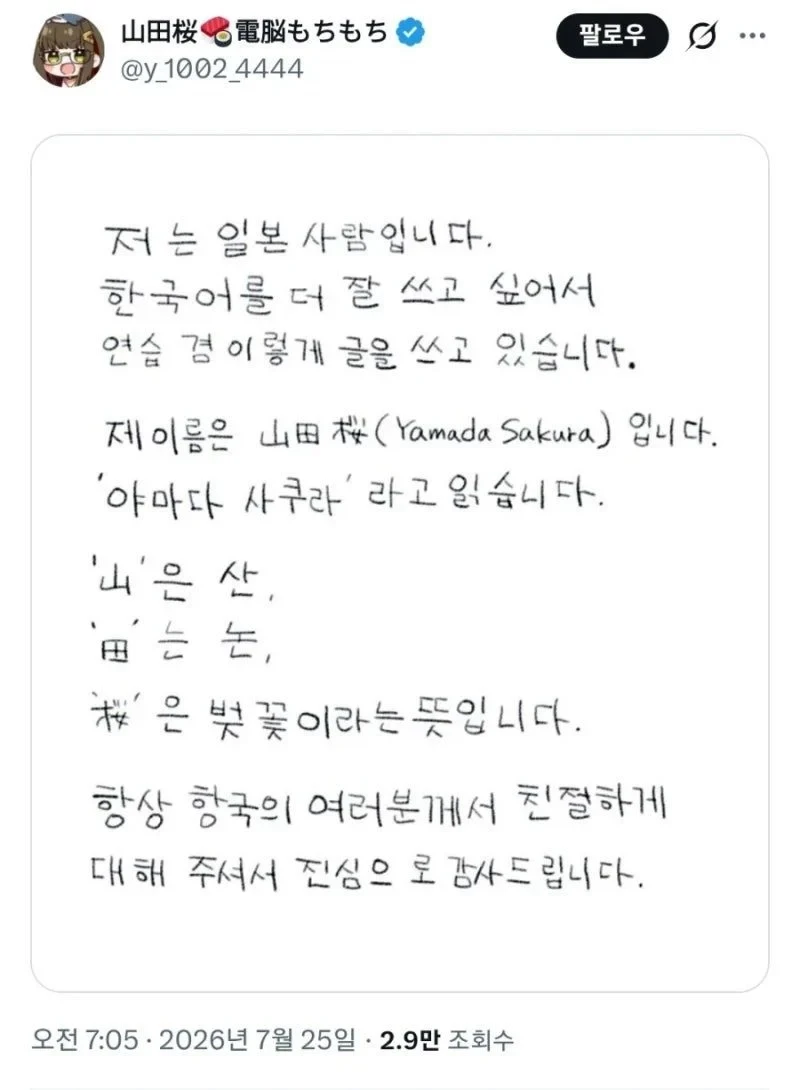 山田桜🍣電脳もちもち
@y_1002_4444
팔로우
저는 일본 사람입니다.
한국어를 더 잘 쓰고 싶어서
연습 겸 이렇게 글을 쓰고 있습니다.
제 이름은 山田 桜(Yamada Sakura) 입니다.
'야마다 사쿠라' 라고 읽습니다.
'山'은 산,
'田'는 논,
'桜'은 벚꽃이라는 뜻입니다.
항상 항국의 여러분께서 친절하게
대해 주셔서 진심으로 감사드립니다.
오전 7:05 · 2026년 7월 25일 · 2.9만 조회수